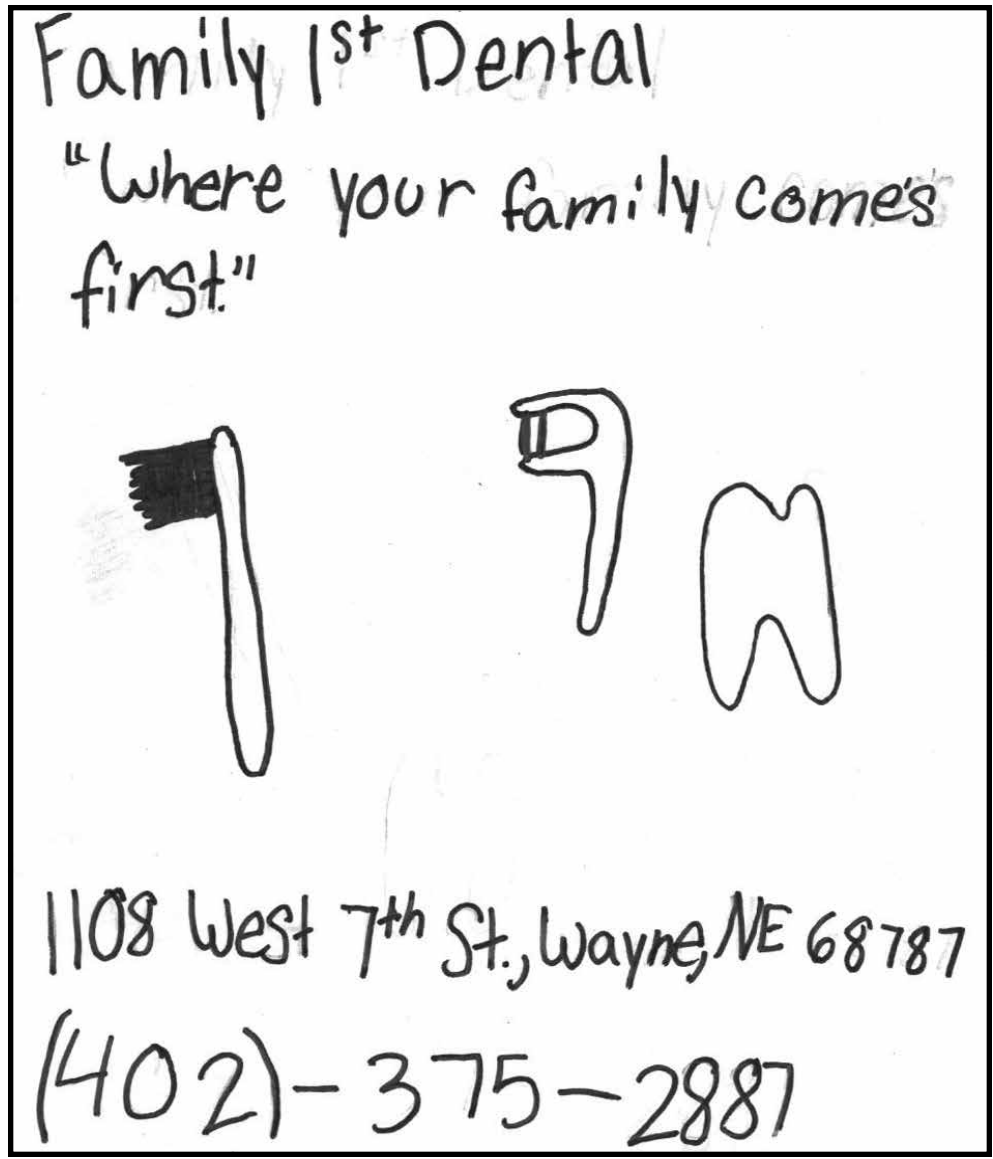 Family 1st Dental
"Where your family come's
first."
1108 West 7th St., Wayne, NE 68787
(402)-375-2887